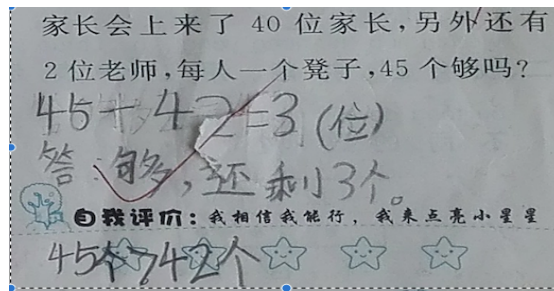 家长会上来了 40 位家长,另外还有
2 位老师,每人一个凳子,45 个够吗?
45-42=3(位)
答:够,还剩3个。
自我评价:我相信我能行,我来点亮小星星
45个>42个